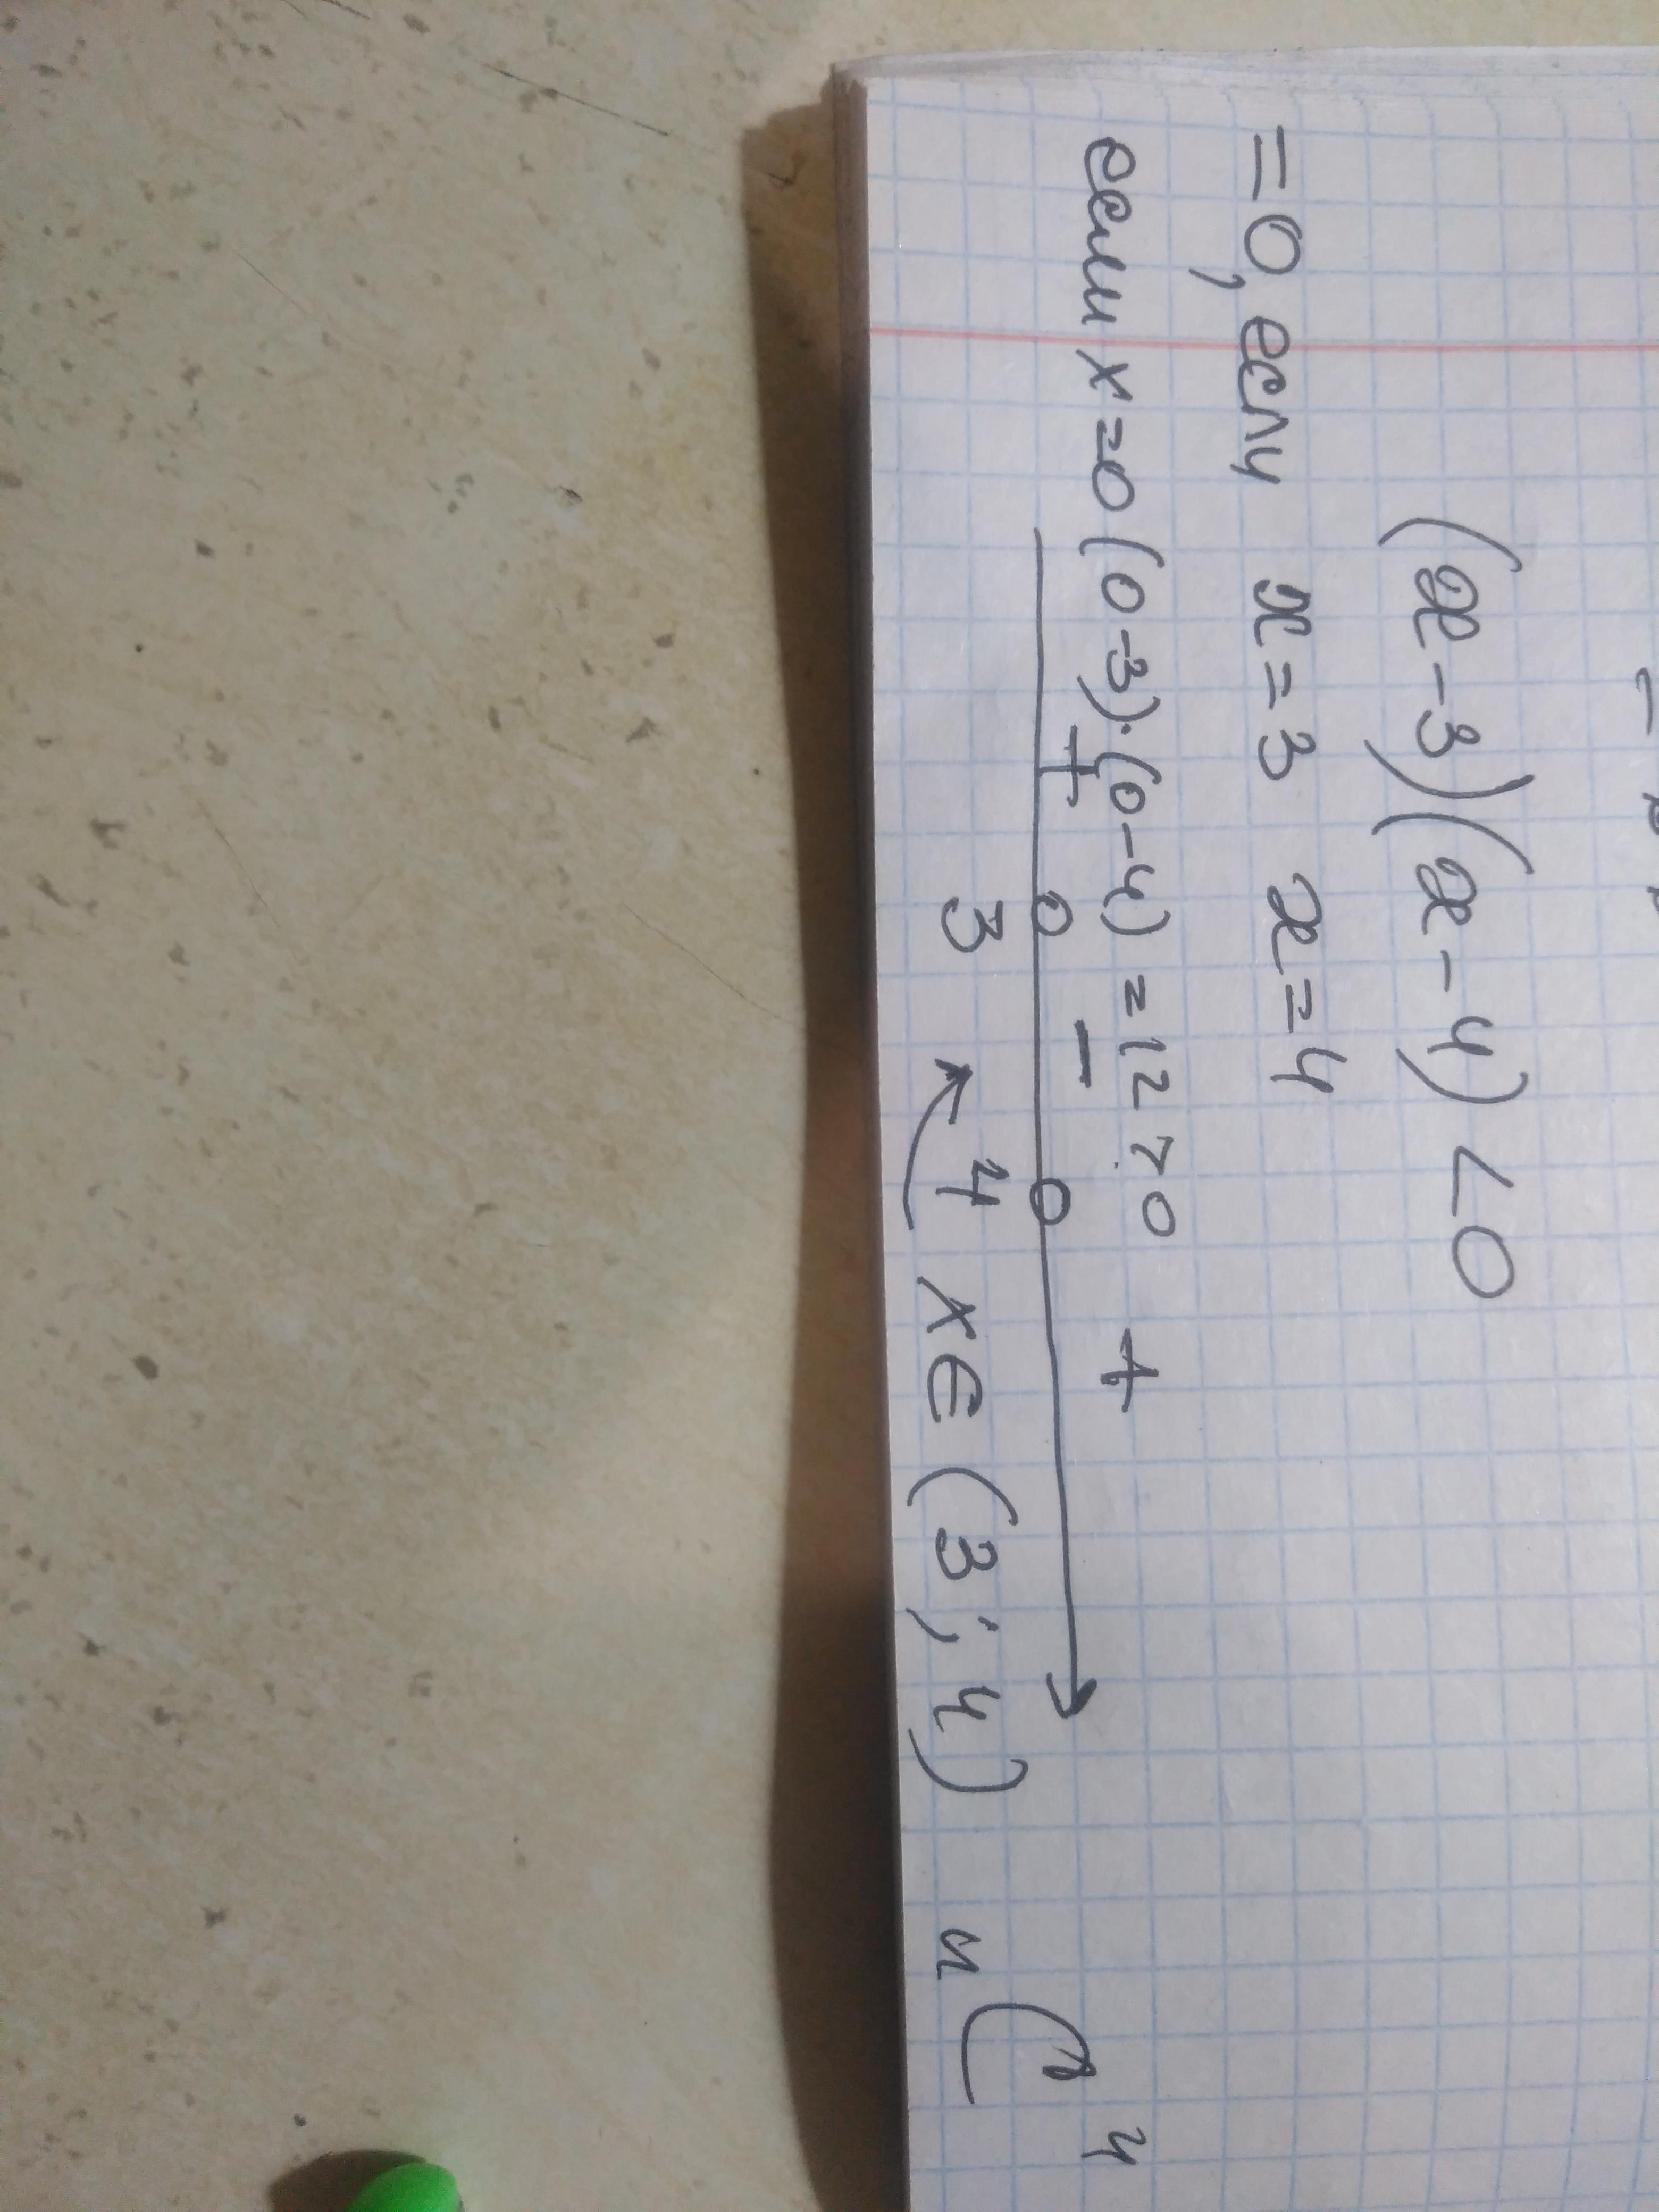 (x-3)(x-4) <0
=0, если x=3 x=4
если x=0 (0-3)·(0-4) =12>0
+ - +
3 4
x∈(3;4) и
4